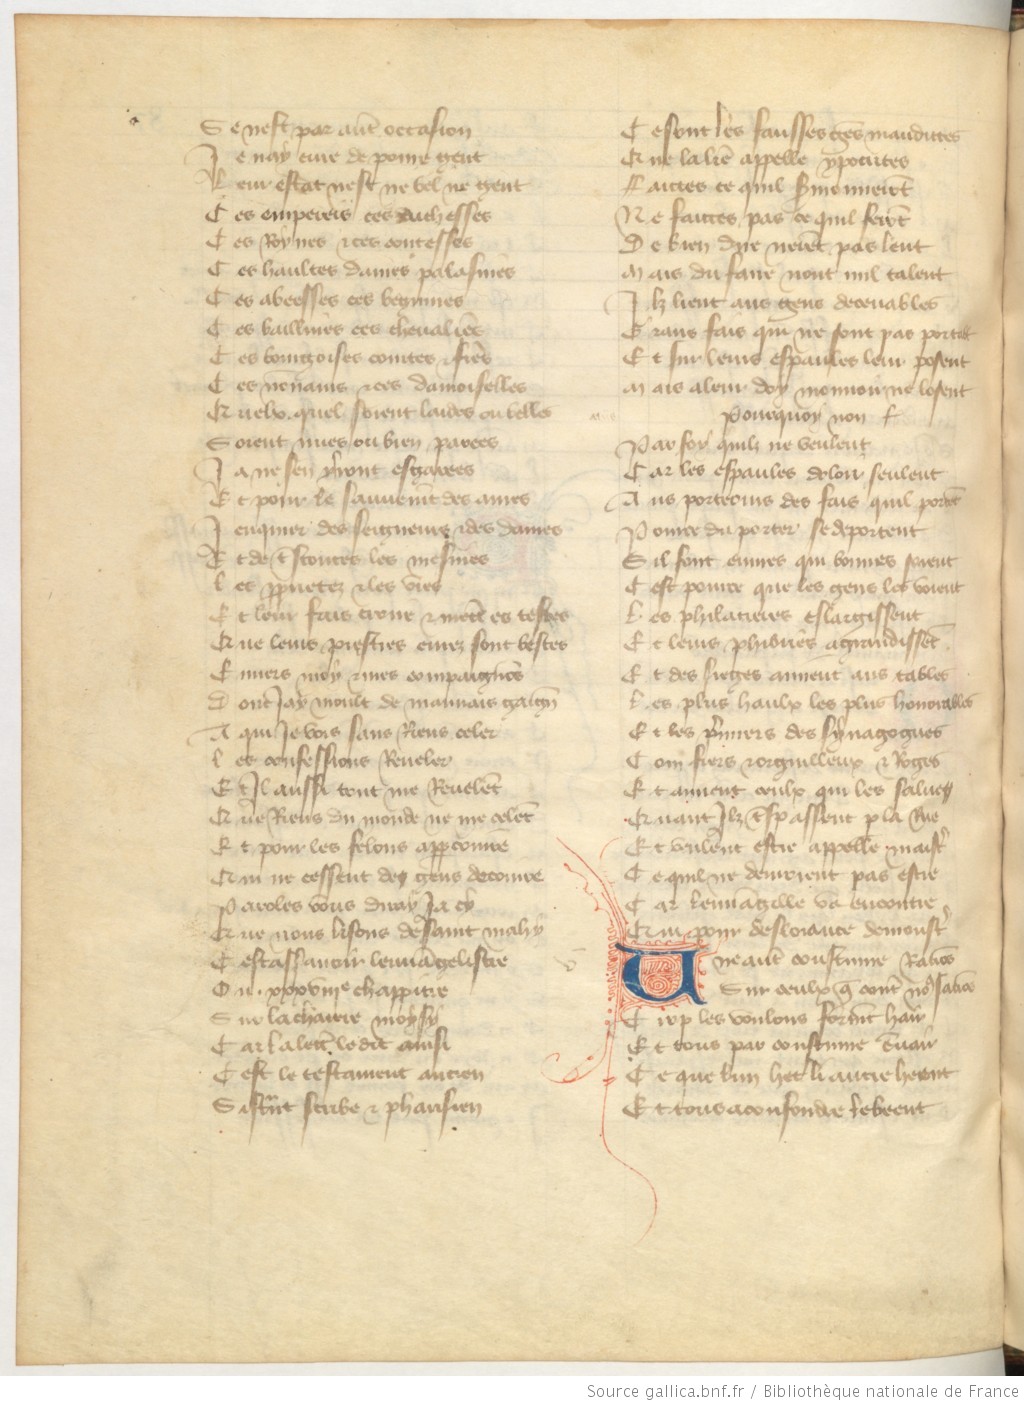 Se nest par aut occasion
Je nay cure de poure gent
Leur estat nest ne bel ne gent
Ces empereis ces duchesses
Ces Roynes et ces contesses
Ces haultes dames palasines
Ces abeesses ces beguines
Ces baillives ces chevalies
Ces bourgoises cointes et fieres
Ces nonnains et ces damoiselles
Que quel soient laides ou belles
Soient nues ou bien parees
Ja ne sen yront esgarees
Et pour le sauvement des ames
Jenquier des seigneurs et des dames
Et de trestoutes les mesnies
Les propretez et les vies
Et leur fais croire et mettre es testes
Que leurs prestres curez sont bestes
Envers moy et mes compaignons
Dont Jay moult de mauvais gaign
A qui Je vois sans Riens celer
Les confessions Reveler
Et Jl aussi tout me Revelent
Que Riens du monde ne me celent
Et pour les felons appcoivre
Qui ne cessent des gens decoivre
Paroles vous diray Ja cy
Que nous lisons de saint mahy
Cest assavoir levvangelistre
Ou xxiii me chappitre
Sur la chaiere moysy
Car la lettre le dit ainsi
Cest le testament ancien
Sistrent scribe et pharisien
Ce sont les fausses gens maudittes
Que la lettre appelle ypocrites
Faittes ce quil sermonneront
Ne faittes pas ce quil feront
De bien dire nerent pas lent
Mais du faire nont nul talent
Jlz lient aus gens decevables
Grans fais qui ne sont pas portables
Et sur leurs espaules leur posent
Mais a leur doy mouvoir ne losent
Pourquoy non
Par foy quilz ne veulent
Car les espaules doloir seulent
Aus porteours des fais quil portent
Pource du porter se deportent
Sil font euvres qui bonnes soient
Cest pource que les gens les voient
Les philatieres eslargissent
Et leurs phibries agrandissent
Et des sieges aiment aus tables
Les plus haulx les plus honorables
Et les premiers des synagogues
Com fiers et orguilleux et Roges
Et aiment ceulx qui les saluent
Quant Jlz trespassent par la Rue
Et veulent estre appelle maistre
Ce quil ne devroient pas estre
Car levvangille va encontre
Qui pour desloiance demonstre
Une autre coustume Ravos
Sur ceulx qui contre nous savos
Trop les voulons forment hair
Et tous par coustume envair
Ce que lun het li autre heent
Et tous a confondre le beent
Source gallica.bnf.fr / Bibliothèque nationale de France